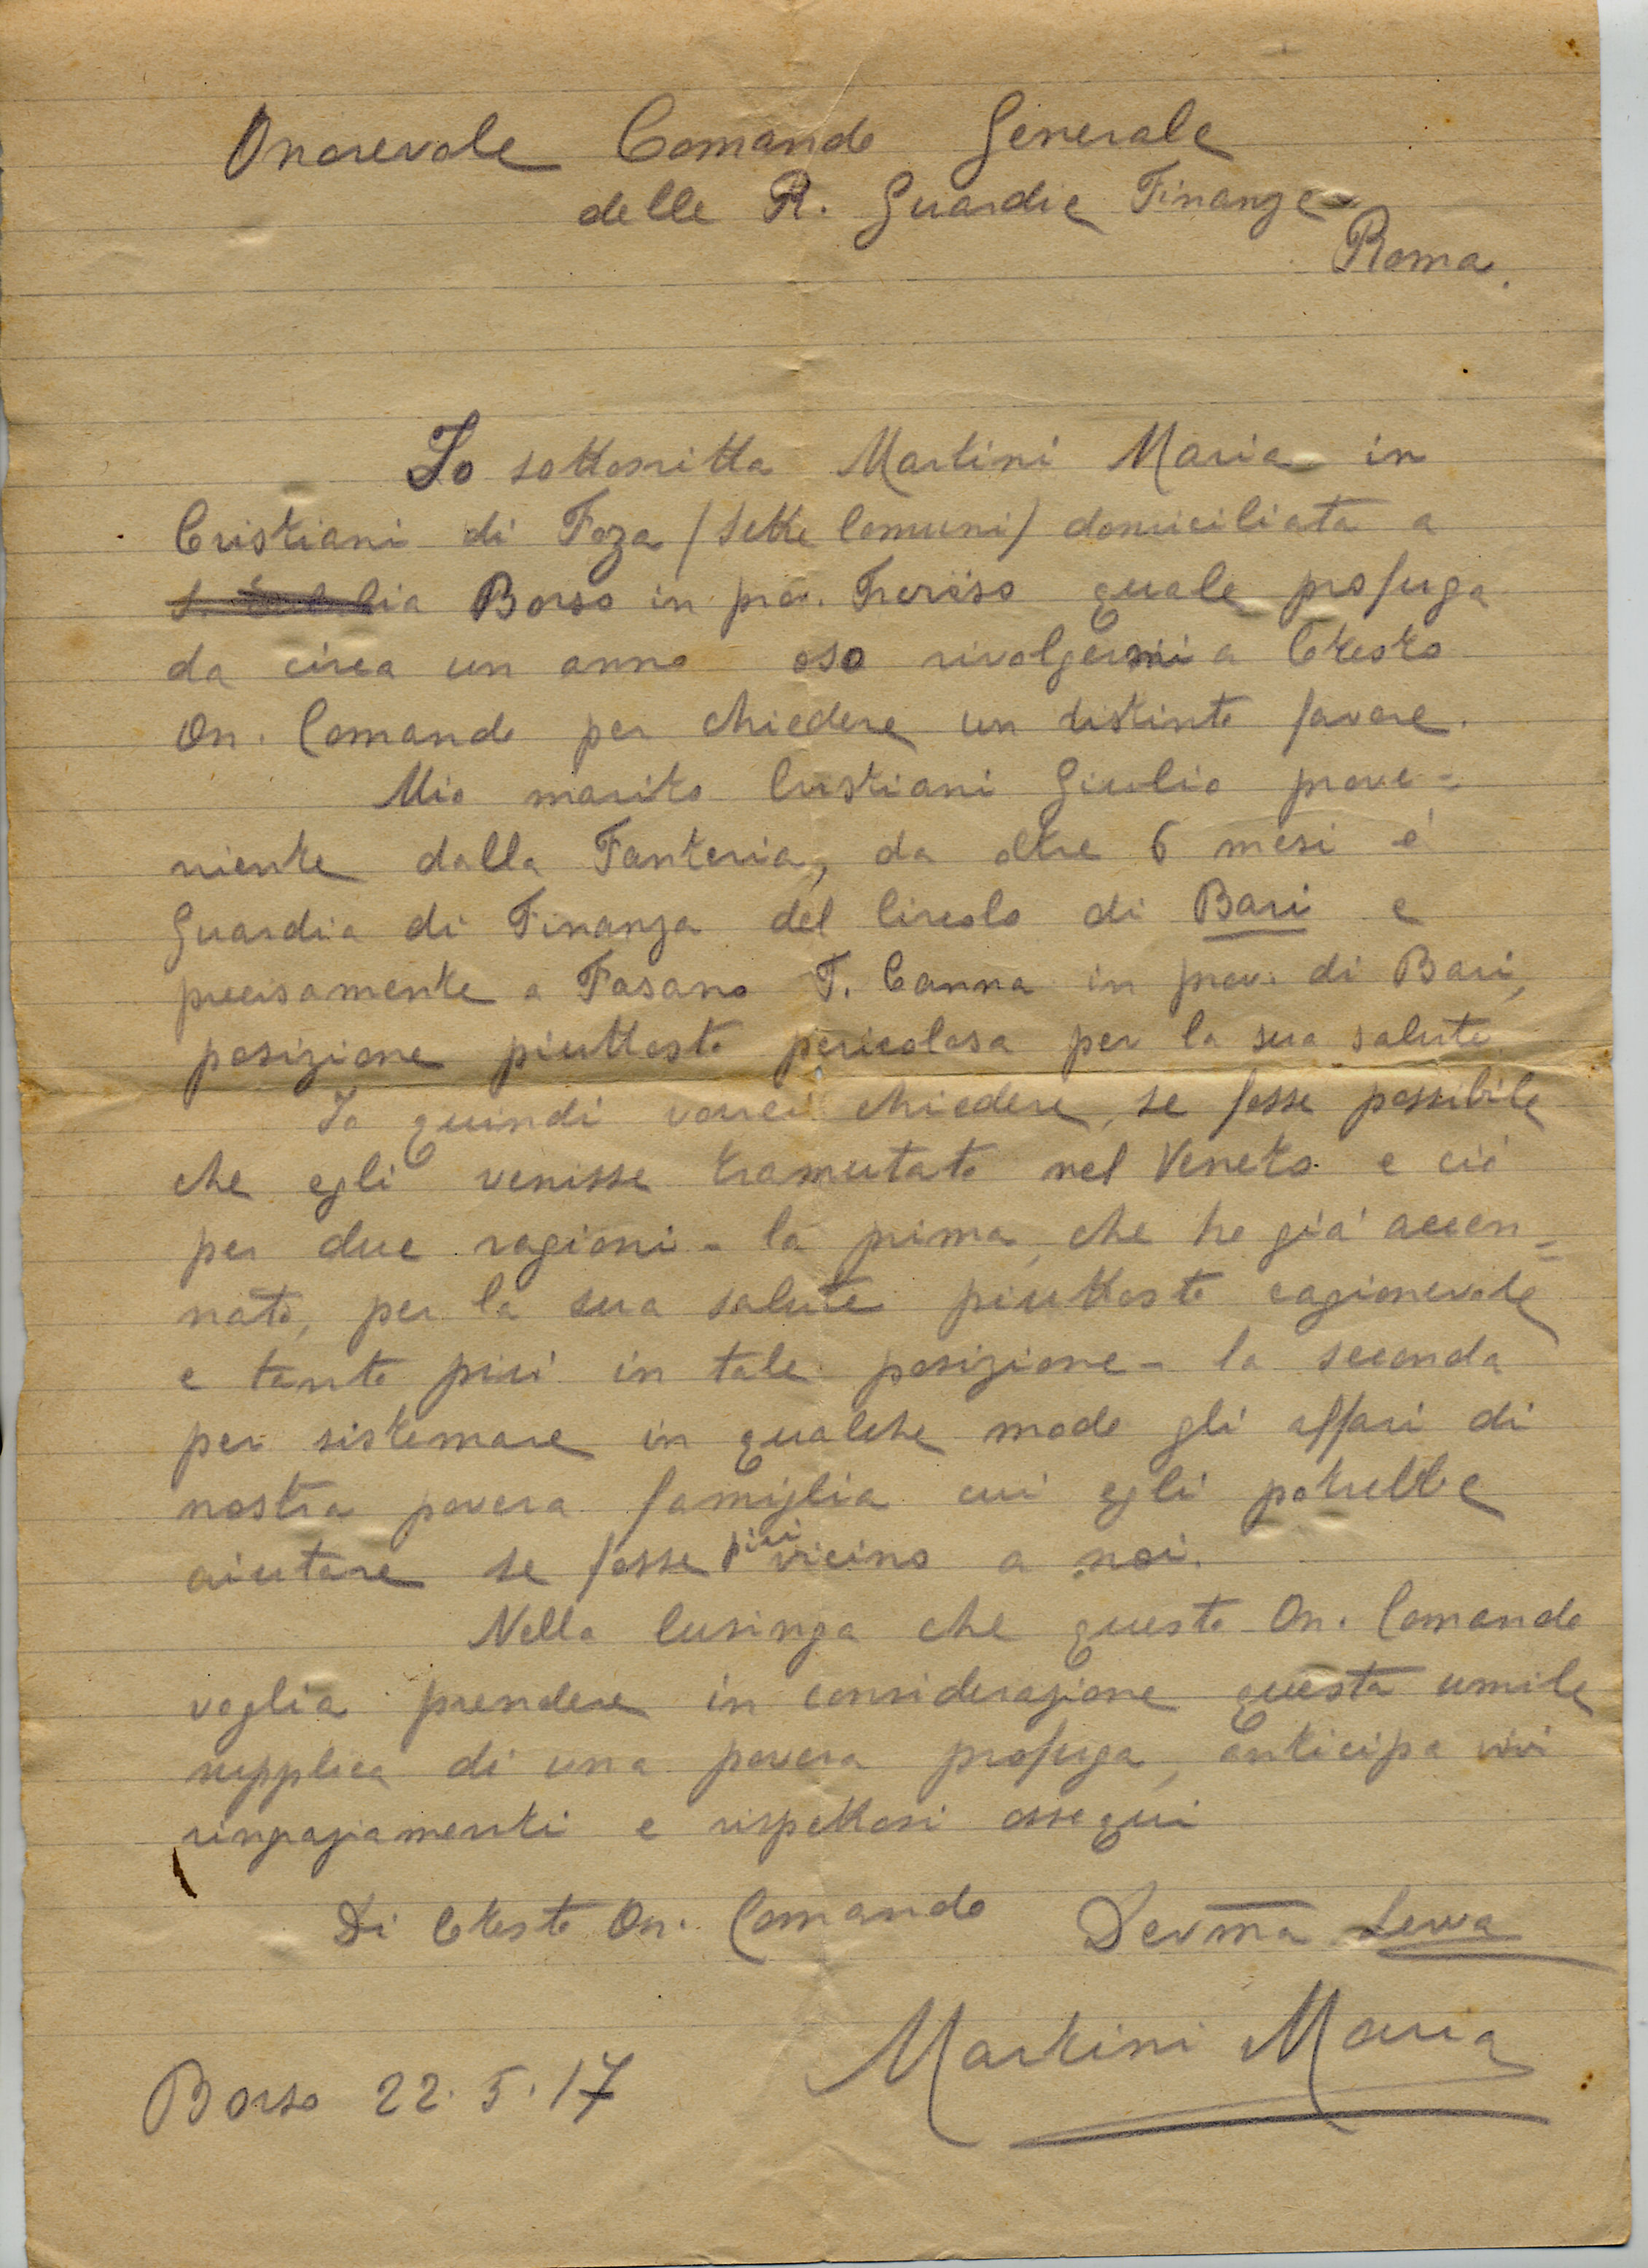 Onorevole Comando Generale
delle R. Guardie Finanze
Roma.
Io sottoscritta Martini Maria in
Cristiani di Foza (Sette Comuni) domiciliata a
Borso in prov. Treviso quale profuga
da circa un anno oso rivolgermi a Cotesto
On. Comando per chiedere un distinto favore.
Mio marito Cristiani Giulio prove=
niente dalla Fanteria, da oltre 6 mesi é
Guardia di Finanza del Circolo di Bari e
precisamente a Fasano T. Canna in prov. di Bari,
posizione piuttosto pericolosa per la sua salute.
Io quindi vorrei chiedere, se fosse possibile
che egli venisse tramutato nel Veneto e ció
per due ragioni - la prima, che ho giá accen=
nato, per la sua salute piuttosto cagionevole
e tanto piú in tale posizione - la seconda
per sistemare in qualche modo gli affari di
nostra povera famiglia cui egli potrebbe
aiutare se fosse piú vicino a noi.
Nella lusinga che questo On. Comando
voglia prendere in considerazione questa umile
supplica di una povera profuga, anticipa vivi
ringraziamenti e rispettosi ossequi
Di Cotesto On. Comando Devma Serva
Martini Maria
Borso 22.5.17